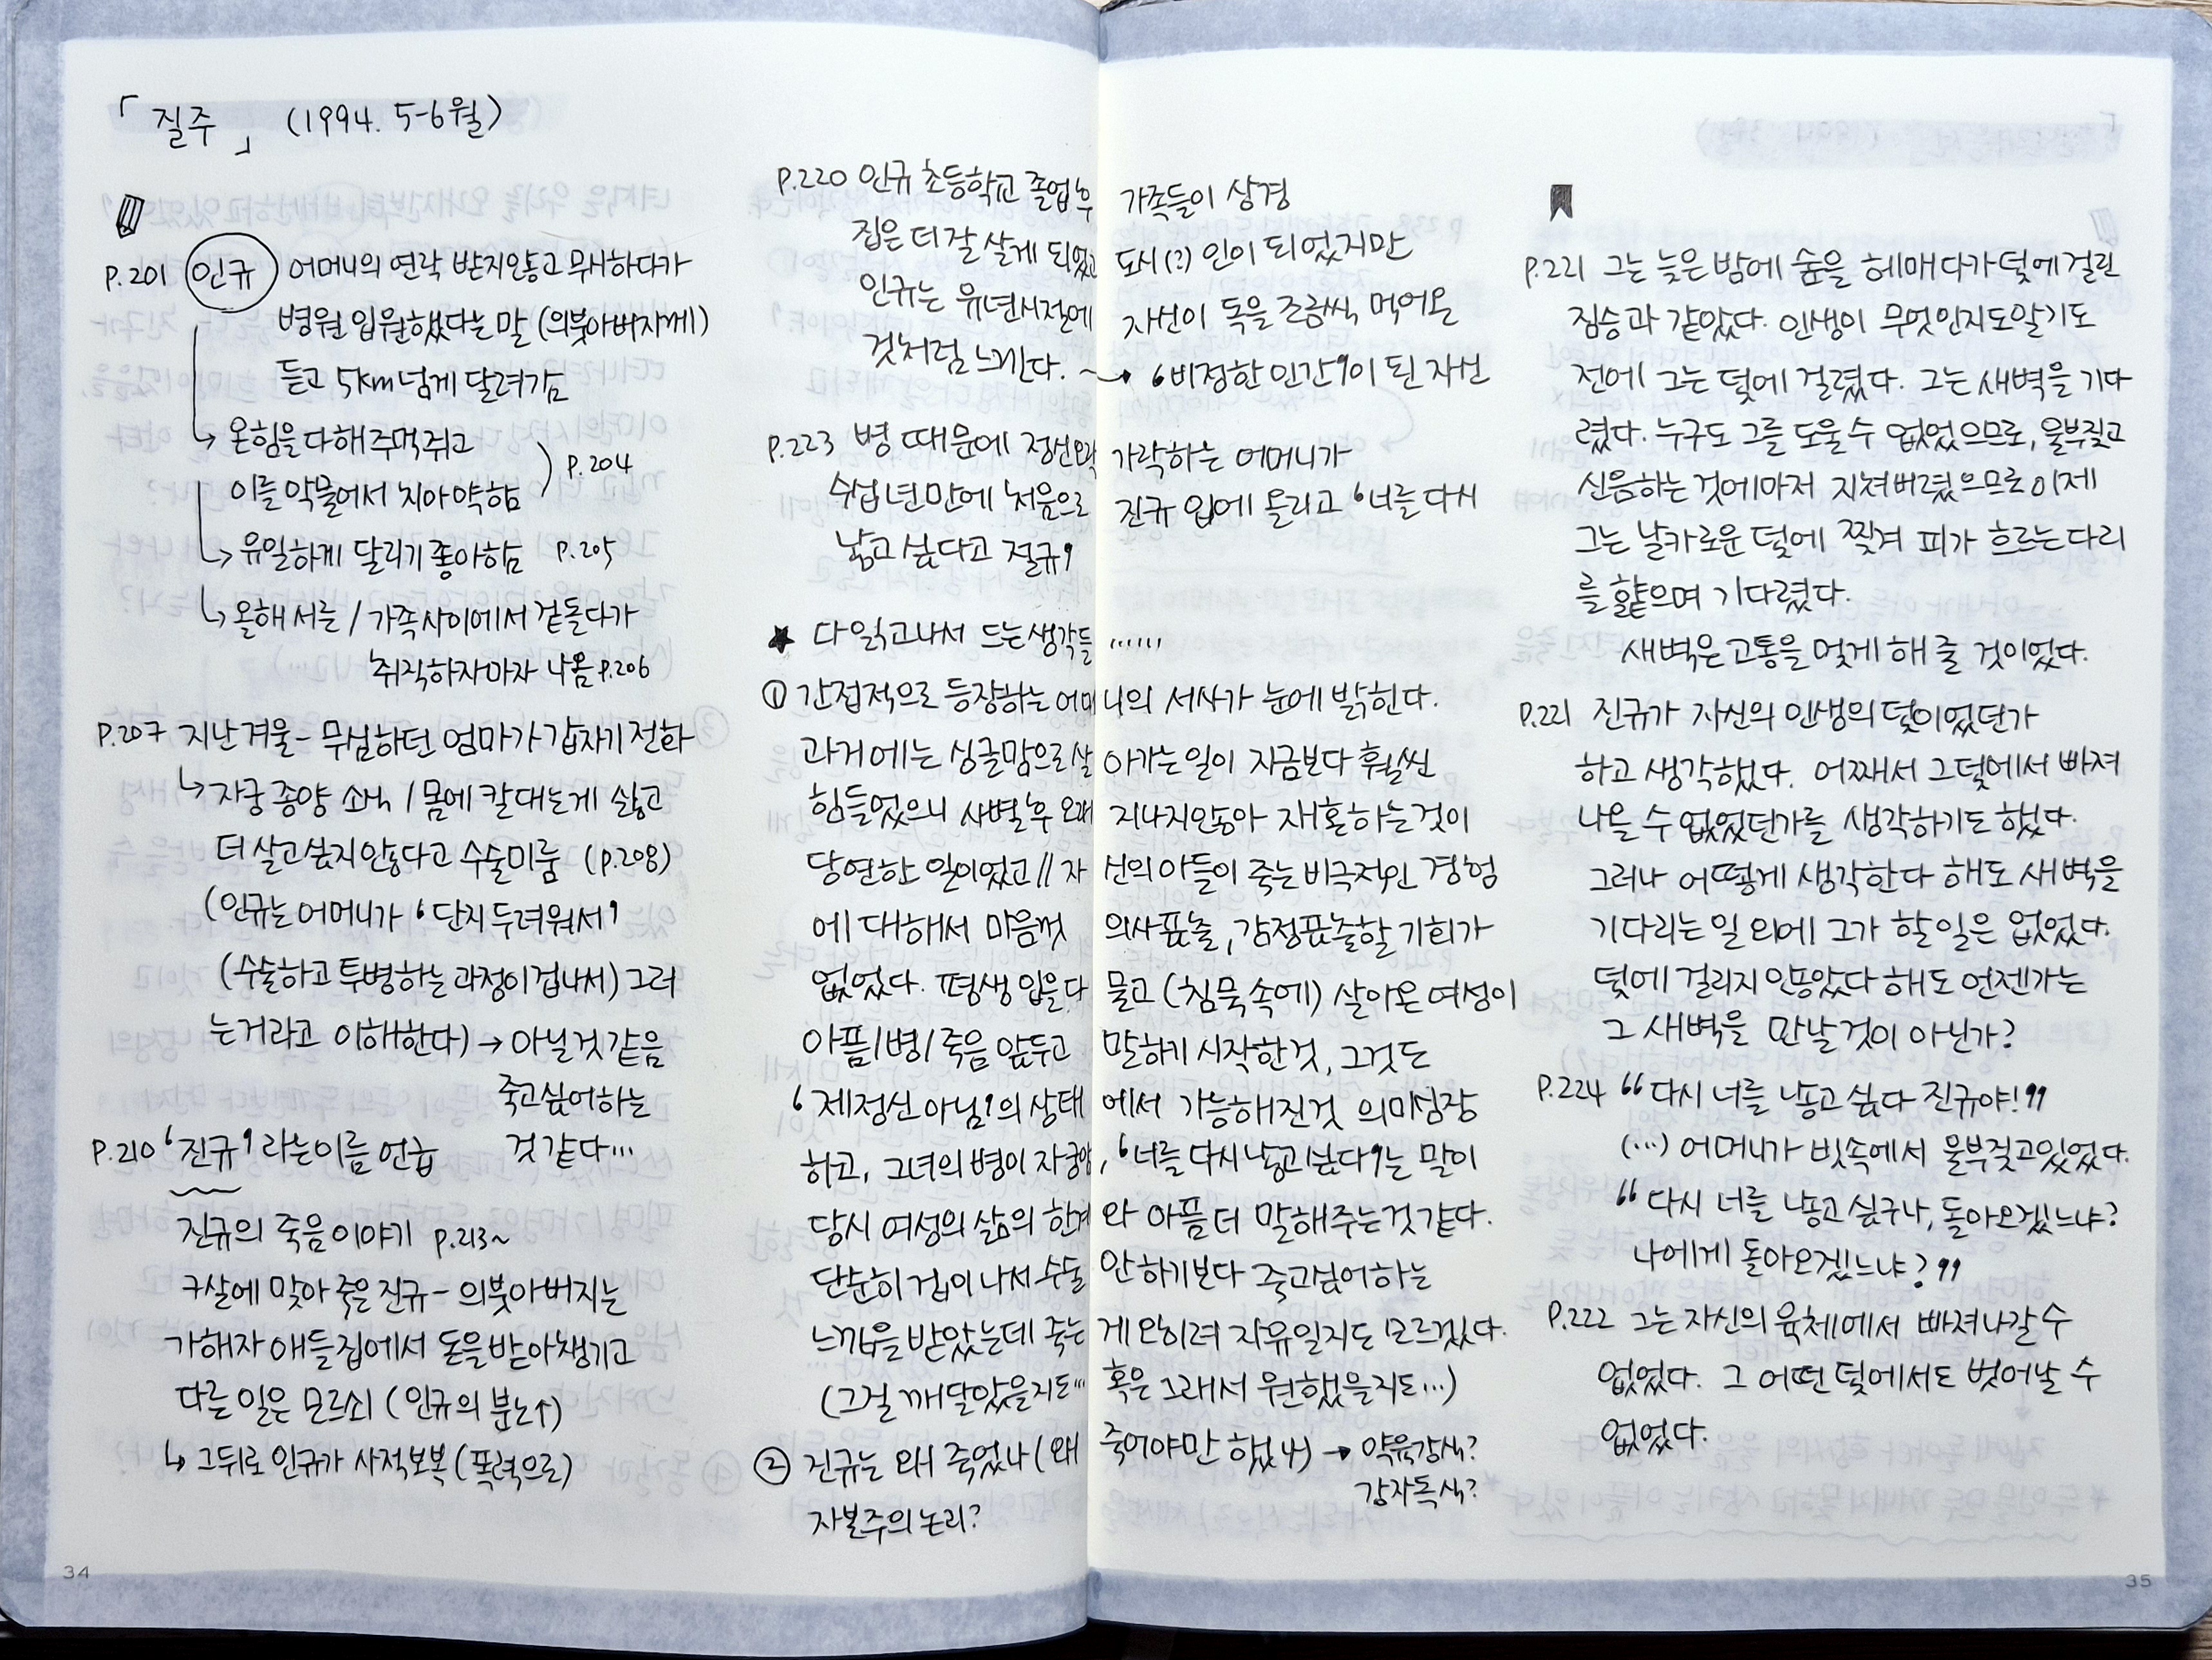 「질주」 (1994. 5-6월)
P.201 인규 어머니의 연락 받지않고 무시하다가
병원 입원했다는 말 (의붓아버지께)
듣고 5km 넘게 달려감
↳ 온힘을 다해 주먹쥐고
이를 악물어서 치아 약함 ) P.204
↳ 유일하게 달리기 좋아함 P.205
↳ 올해 서른 / 가족사이에서 겉돌다가
취직하자마자 나옴 P.206
P.207 지난 겨울 - 무심하던 엄마가 갑자기 전화
↳ 자궁 종양 소식 / 몸에 칼 대는게 싫고
더 살고싶지 않다고 수술미룸 (P.208)
(인규는 어머니가 '단지 두려워서'
(수술하고 투병하는 과정이 겁나서) 그러
는거라고 이해한다) → 아닐것 같음
죽고싶어하는
것 같다...
P.210 '진규'라는 이름 언급
진규의 죽음 이야기 P.213~
7살에 맞아 죽은 진규 - 의붓아버지는
가해자 애들 집에서 돈을 받아 챙기고
다른 일은 모르쇠 (인규의 분노↑)
↳ 그 뒤로 인규가 사적보복 (폭력으로)
P.220 인규 초등학교 졸업 후 가족들이 상경
집은 더 잘 살게 되었고 도시(?)인이 되었지만
인규는 유년시절에 자신이 독을 조금씩 먹어온
것처럼 느낀다. ~→ '비정한 인간'이 된 자신
P.223 병 때문에 정신 오락가락하는 어머니가
수십년 만에 처음으로 진규 입에 올리고 '너를 다시
낳고 싶다고 절규'
★ 다 읽고나서 드는 생각들 ......
① 간접적으로 등장하는 어머니의 서사가 눈에 밟힌다.
과거에는 싱글맘으로 살아가는 일이 지금보다 훨씬
힘들었으니 사별 후 오래 지나지 않아 재혼하는 것이
당연한 일이었고 // 자신의 아들이 죽는 비극적인 경험
에 대해서 마음껏 의사표출, 감정표출할 기회가
없었다. 평생 입을 다물고 (침묵 속에) 살아온 여성이
아픔/병/죽음 앞두고 말하기 시작한 것, 그것도
'제정신 아님'의 상태에서 가능해진 것 의미심장
하고, 그녀의 병이 자궁암, '너를 다시 낳고싶다'는 말이
당시 여성의 삶의 한계와 아픔 더 말해주는 것 같다.
단순히 겁이 나서 수술 안하기보다 죽고싶어하는
느낌을 받았는데 죽는 게 오히려 자유일지도 모르겠다.
(그걸 깨달았을지도... 혹은 그래서 원했을지도...)
② 진규는 왜 죽었나 (왜 죽어야만 했나) → 약육강식?
강자독식?
자본주의 논리?
P.221 그는 늦은 밤에 숲을 헤매다가 덫에 걸린
짐승과 같았다. 인생이 무엇인지도 알기도
전에 그는 덫에 걸렸다. 그는 새벽을 기다
렸다. 누구도 그를 도울 수 없었으므로, 울부짖고
신음하는 것에마저 지쳐버렸으므로 이제
그는 날카로운 덫에 찢겨 피가 흐르는 다리
를 핥으며 기다렸다.
새벽은 고통을 멎게 해 줄 것이었다.
P.221 진규가 자신의 인생의 덫이었던가
하고 생각했다. 어째서 그 덫에서 빠져
나올 수 없었던가를 생각하기도 했다.
그러나 어떻게 생각한다 해도 새벽을
기다리는 일 외에 그가 할 일은 없었다.
덫에 걸리지 않았다 해도 언젠가는
그 새벽을 만날 것이 아닌가?
P.224 “다시 너를 낳고 싶다 진규야!”
(...) 어머니가 빗속에서 울부짖고 있었다.
“다시 너를 낳고 싶구나, 돌아오겠느냐?
나에게 돌아오겠느냐?”
P.222 그는 자신의 육체에서 빠져나갈 수
없었다. 그 어떤 덫에서도 벗어날 수
없었다.
34
35